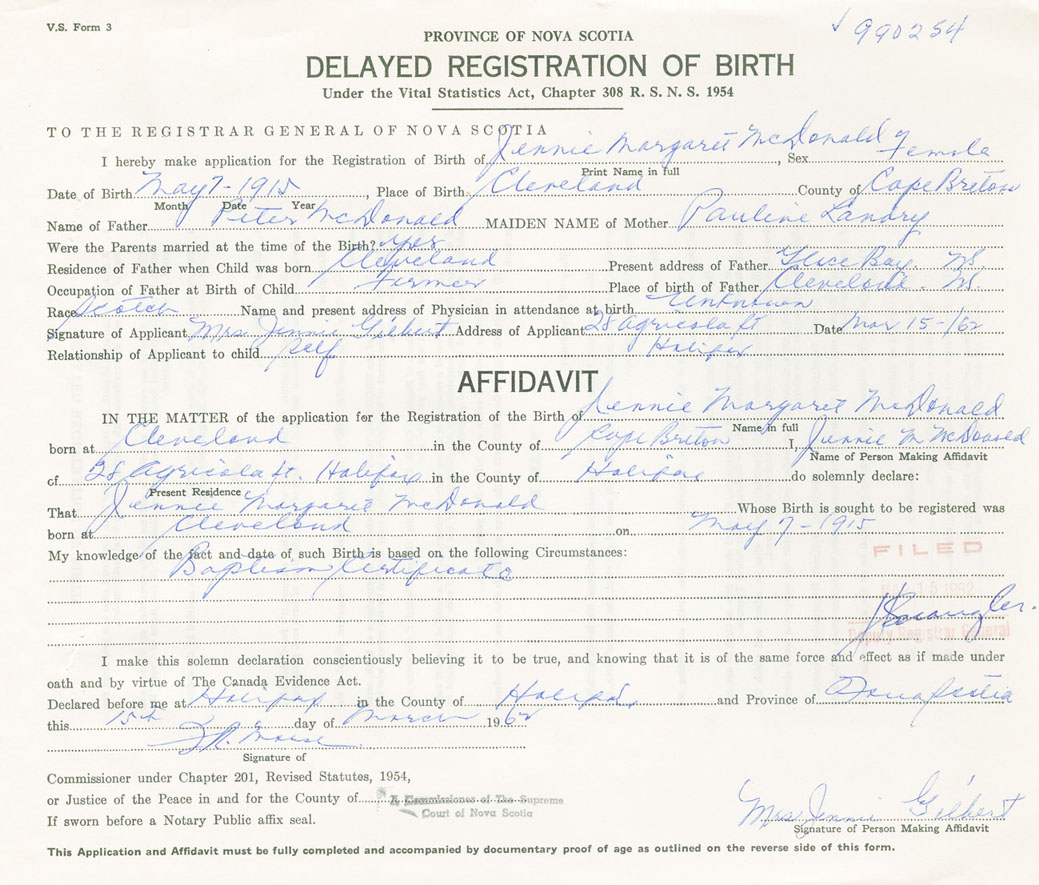 V.S. Form 3
990254
PROVINCE OF NOVA SCOTIA
DELAYED REGISTRATION OF BIRTH
Under the Vital Statistics Act, Chapter 308 R. S. N. S. 1954
TO THE REGISTRAR GENERAL OF NOVA SCOTIA
I hereby make application for the Registration of Birth of Jennie Margaret McDonald, Sex Female
Print Name in full
Date of Birth May 7-1915, Place of Birth Cleveland County of Cape Breton
Month Date Year
Name of Father Peter McDonald MAIDEN NAME of Mother Pauline Landry
Were the Parents married at the time of the Birth? yes
Residence of Father when Child was born Cleveland Present address of Father Glace Bay. N.S.
Occupation of Father at Birth of Child Farmer Place of birth of Father Cleveland - N.S.
Race Scotch Name and present address of Physician in attendance at birth Unknown
Signature of Applicant Mrs. Jennie Gilbert Address of Applicant 28 Agricola St Date Mar 15-/62
Relationship of Applicant to child self Halifax
AFFIDAVIT
IN THE MATTER of the application for the Registration of the Birth of Jennie Margaret McDonald
Name in full
born at Cleveland in the County of Cape Breton I, Jennie M McDonald
Name of Person Making Affidavit
of 28 Agricola St. Halifax in the County of Halifax do solemnly declare:
Present Residence
That Jennie Margaret McDonald Whose Birth is sought to be registered was
born at Cleveland on May 7-1915
My knowledge of the fact and date of such Birth is based on the following Circumstances:
Baptism Certificate
FILED
Deputy Registrar General
I make this solemn declaration conscientiously believing it to be true, and knowing that it is of the same force and effect as if made under
oath and by virtue of The Canada Evidence Act.
Declared before me at Halifax in the County of Halifax, and Province of Nova Scotia
this 15th day of March 1962
Signature of
Commissioner under Chapter 201, Revised Statutes, 1954,
or Justice of the Peace in and for the County of A Commissioner of The Supreme
Court of Nova Scotia
If sworn before a Notary Public affix seal.
Mrs Jennie Gilbert
Signature of Person Making Affidavit
This Application and Affidavit must be fully completed and accompanied by documentary proof of age as outlined on the reverse side of this form.